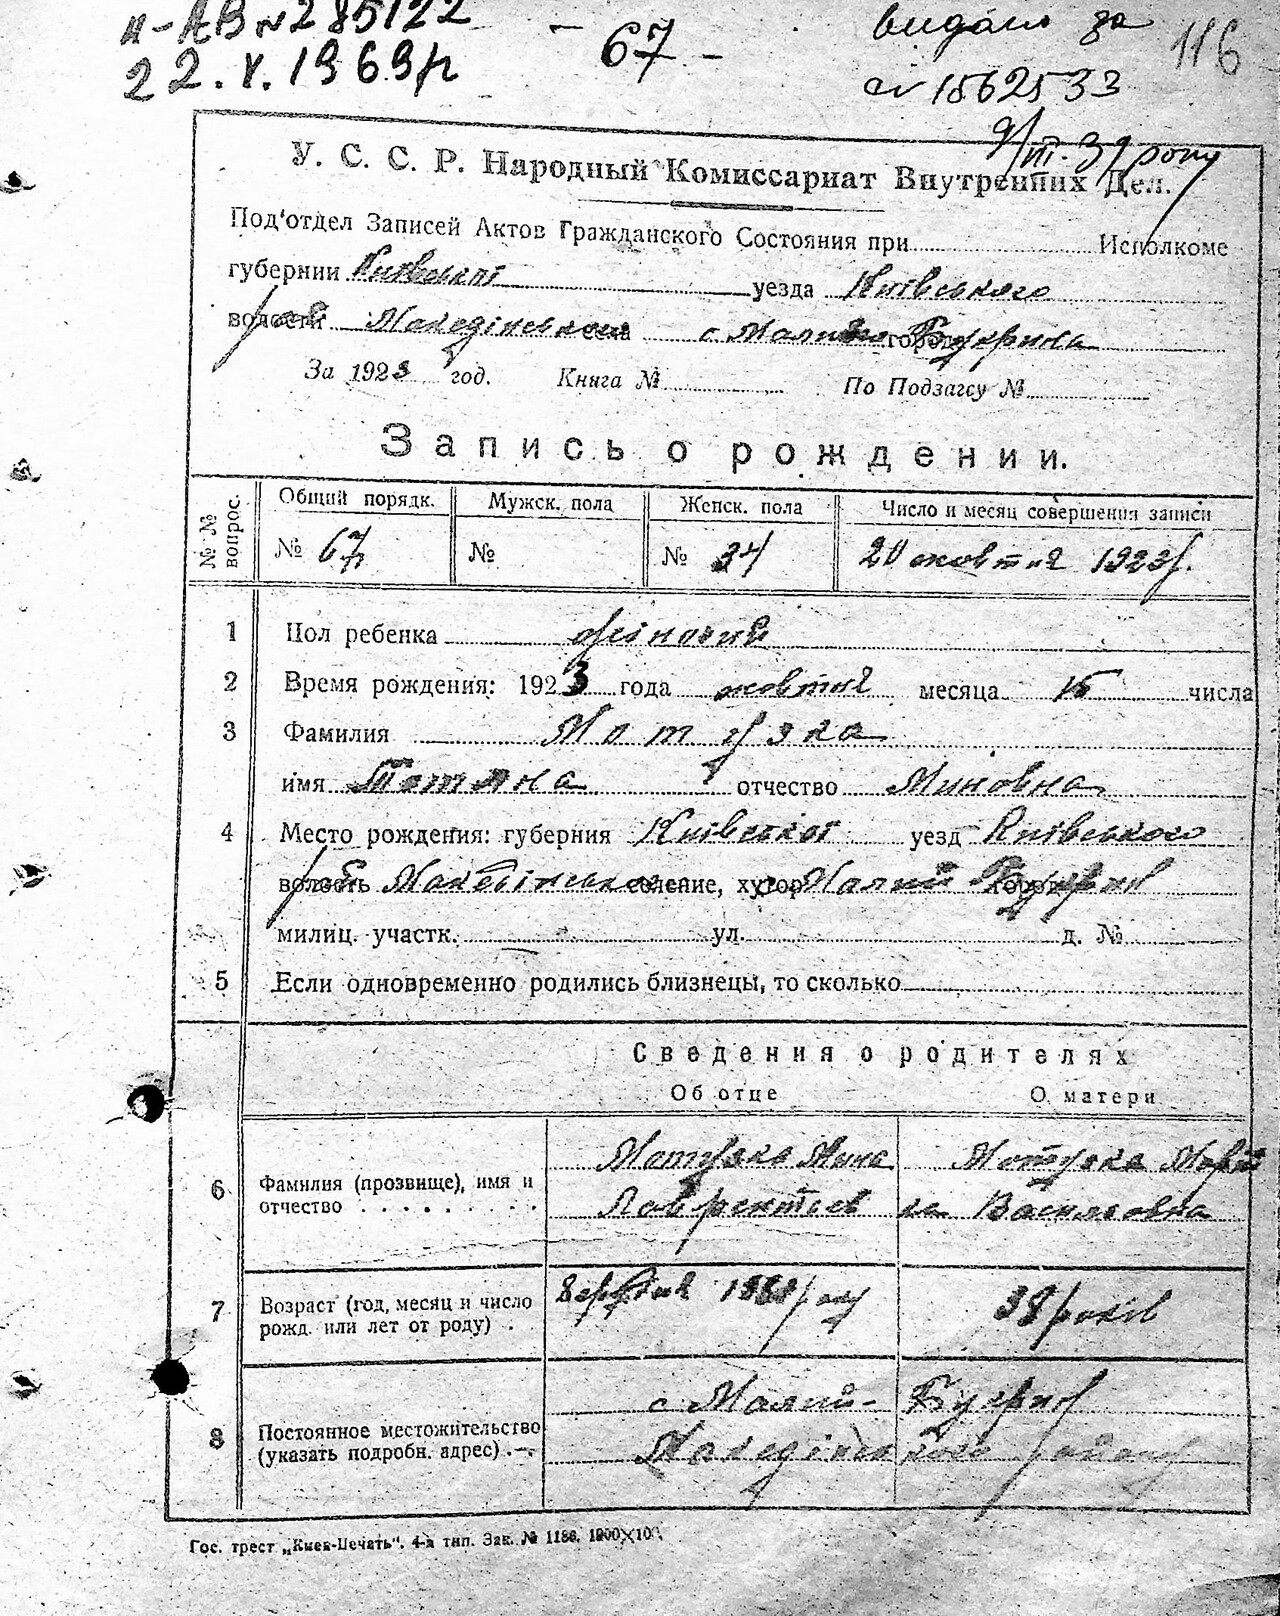 II-АВ №285122
22.V.1969р
- 67 -
видано за
№ 1562533
116
9/III-39 року
У. С. С. Р. Народный Комиссариат Внутренних Дел.
Под'отдел Записей Актов Гражданского Состояния при Исполкоме
губернии Київської уезда Київського
волости села с Малий город Букрин
За 1923 год. Книга № По Подзагсу №
Запись о рождении.
№ № вопрос. Общий порядк. Мужск. пола Женск. пола Число и месяц совершения записи
№ 67 № № 34 20 жовтня 1923р.
1 Пол ребенка жіночий
2 Время рождения: 1923 года жовтня месяца 15 числа
3 Фамилия Мотузка
имя Тетяна отчество Миновна
4 Место рождения: губерния Київської уезд Київського
волость селение, хутор Малий Букрин город
милиц. участк. ул. д. №
5 Если одновременно родились близнецы, то сколько
Сведения о родителях
Об отце О матери
6 Фамилия (прозвище), имя и отчество
Мотузка Мина Лаврентіев
Мотузка Марфа Василовна
7 Возраст (год, месяц и число рожд. или лет от роду)
року
38 років
8 Постоянное местожительство (указать подробн. адрес)
с Малий-Букрин
району
Гос. трест „Киев-Печать". 4-я тип. Зак. № 1186. 1000×100.